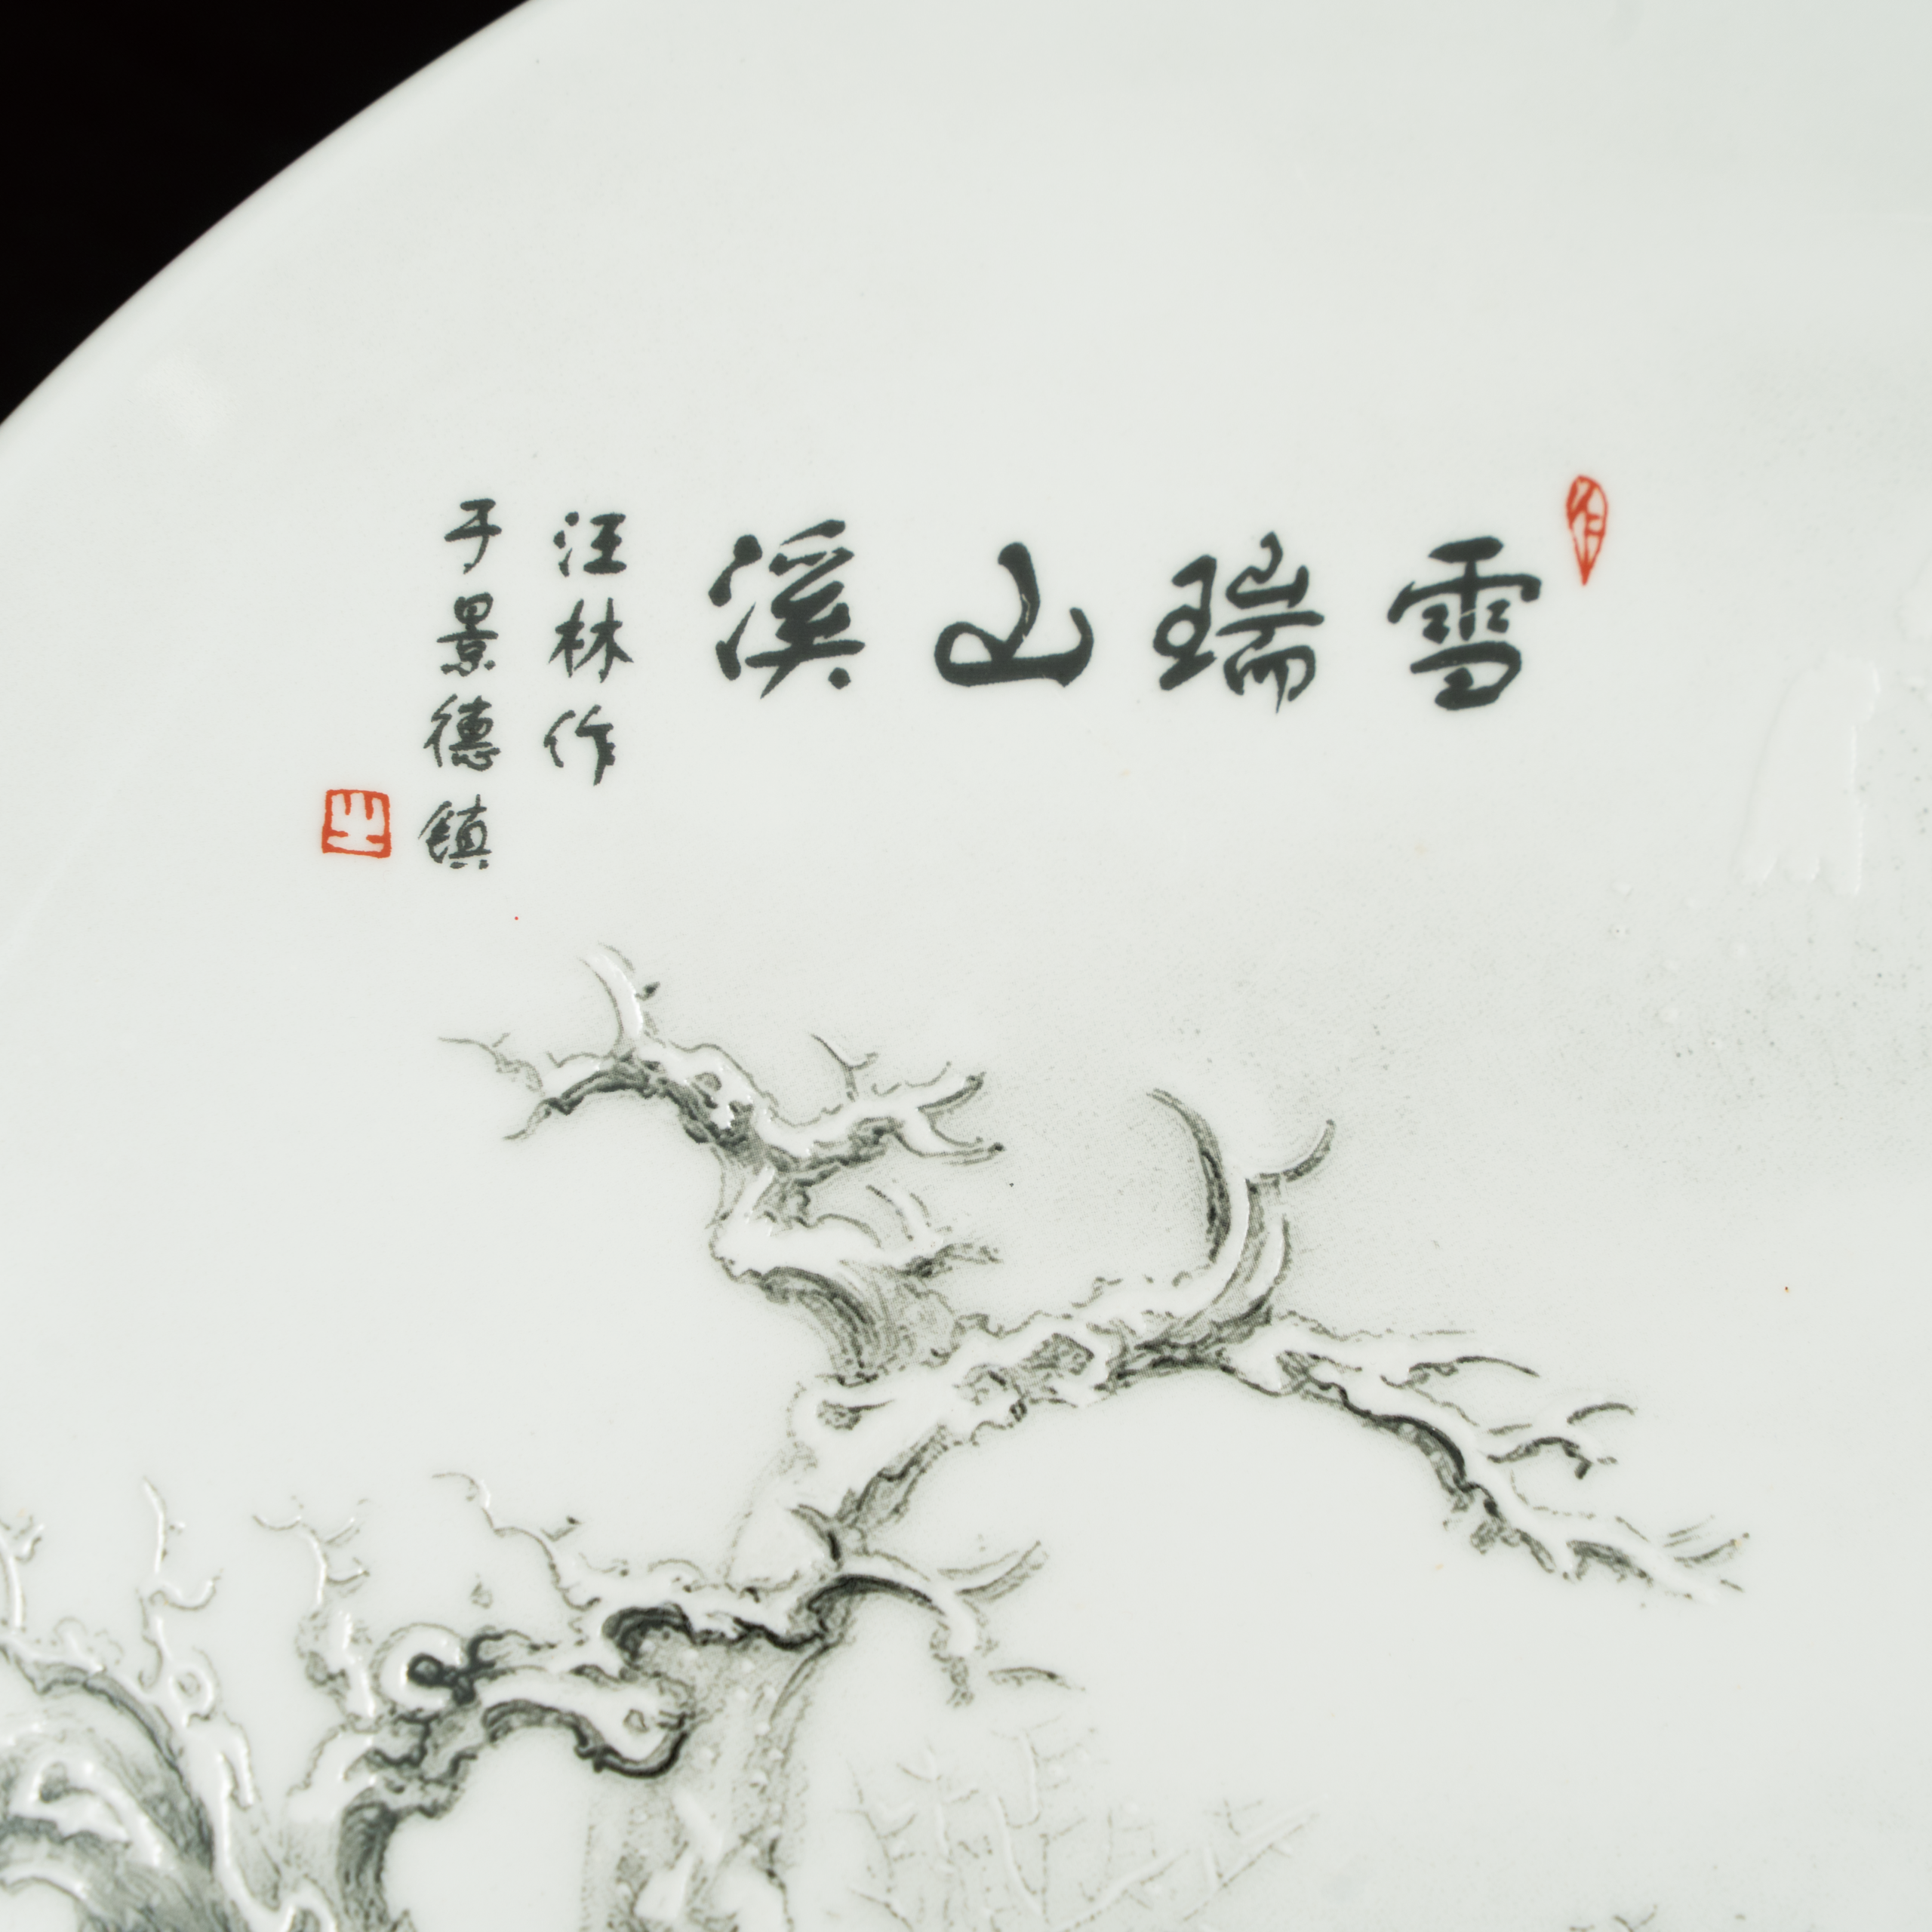 雪瑞山溪
汪林作
于景德镇